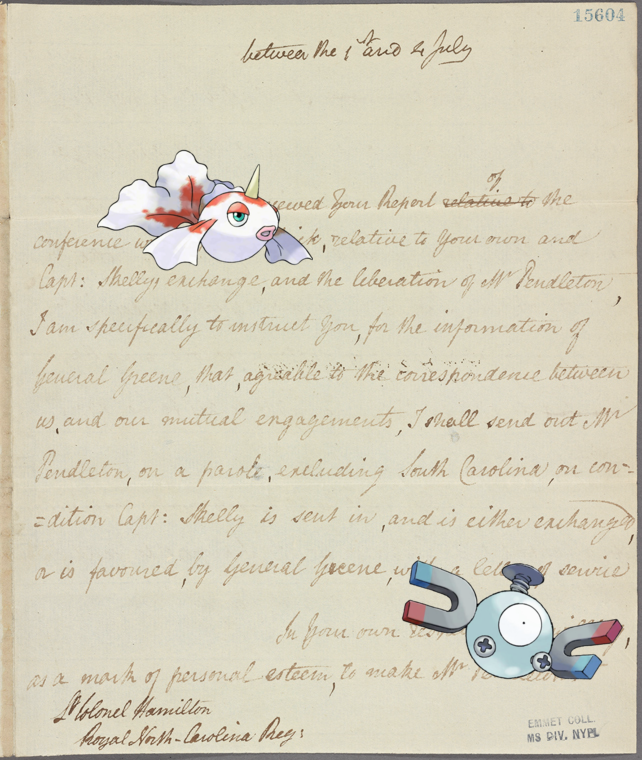 15604
between the 1st and 4 July
ewed your Report relative to of the
conference w ick, relative to Your own and
Capt: Skelly's exchange, and the liberation of Mr Pendleton,
I am specifically to instruct You, for the information of
General Greene, that, agreable to the correspondence between
us, and our mutual engagements, I shall send out Mr
Pendleton, on a parole, excluding South Carolina, on con=
=dition Capt: Skelly is sent in, and is either exchanged,
or is favoured, by General Greene, with a letter of service
In Your own
as a mark of personal esteem, to make Mr
Lt Colonel Hamilton
Royal North-Carolina Reg:
EMMET COLL.
MS DIV. NYPL